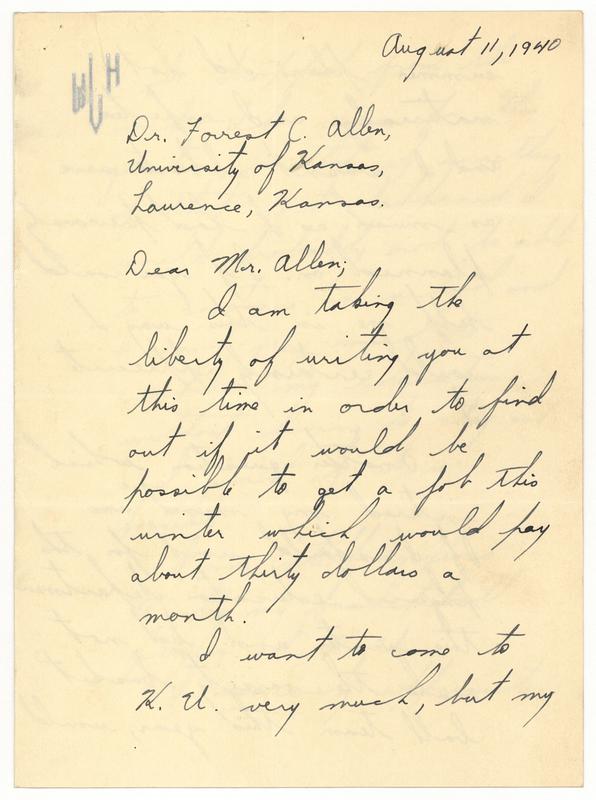 August 11, 1940
WCH
Dr. Forrest C. Allen,
University of Kansas,
Laurence, Kansas.
Dear Mr. Allen;
I am taking the
liberty of writing you at
this time in order to find
out if it would be
possible to get a job this
winter which would pay
about thirty dollars a
month.
I want to come to
K. U. very much, but my